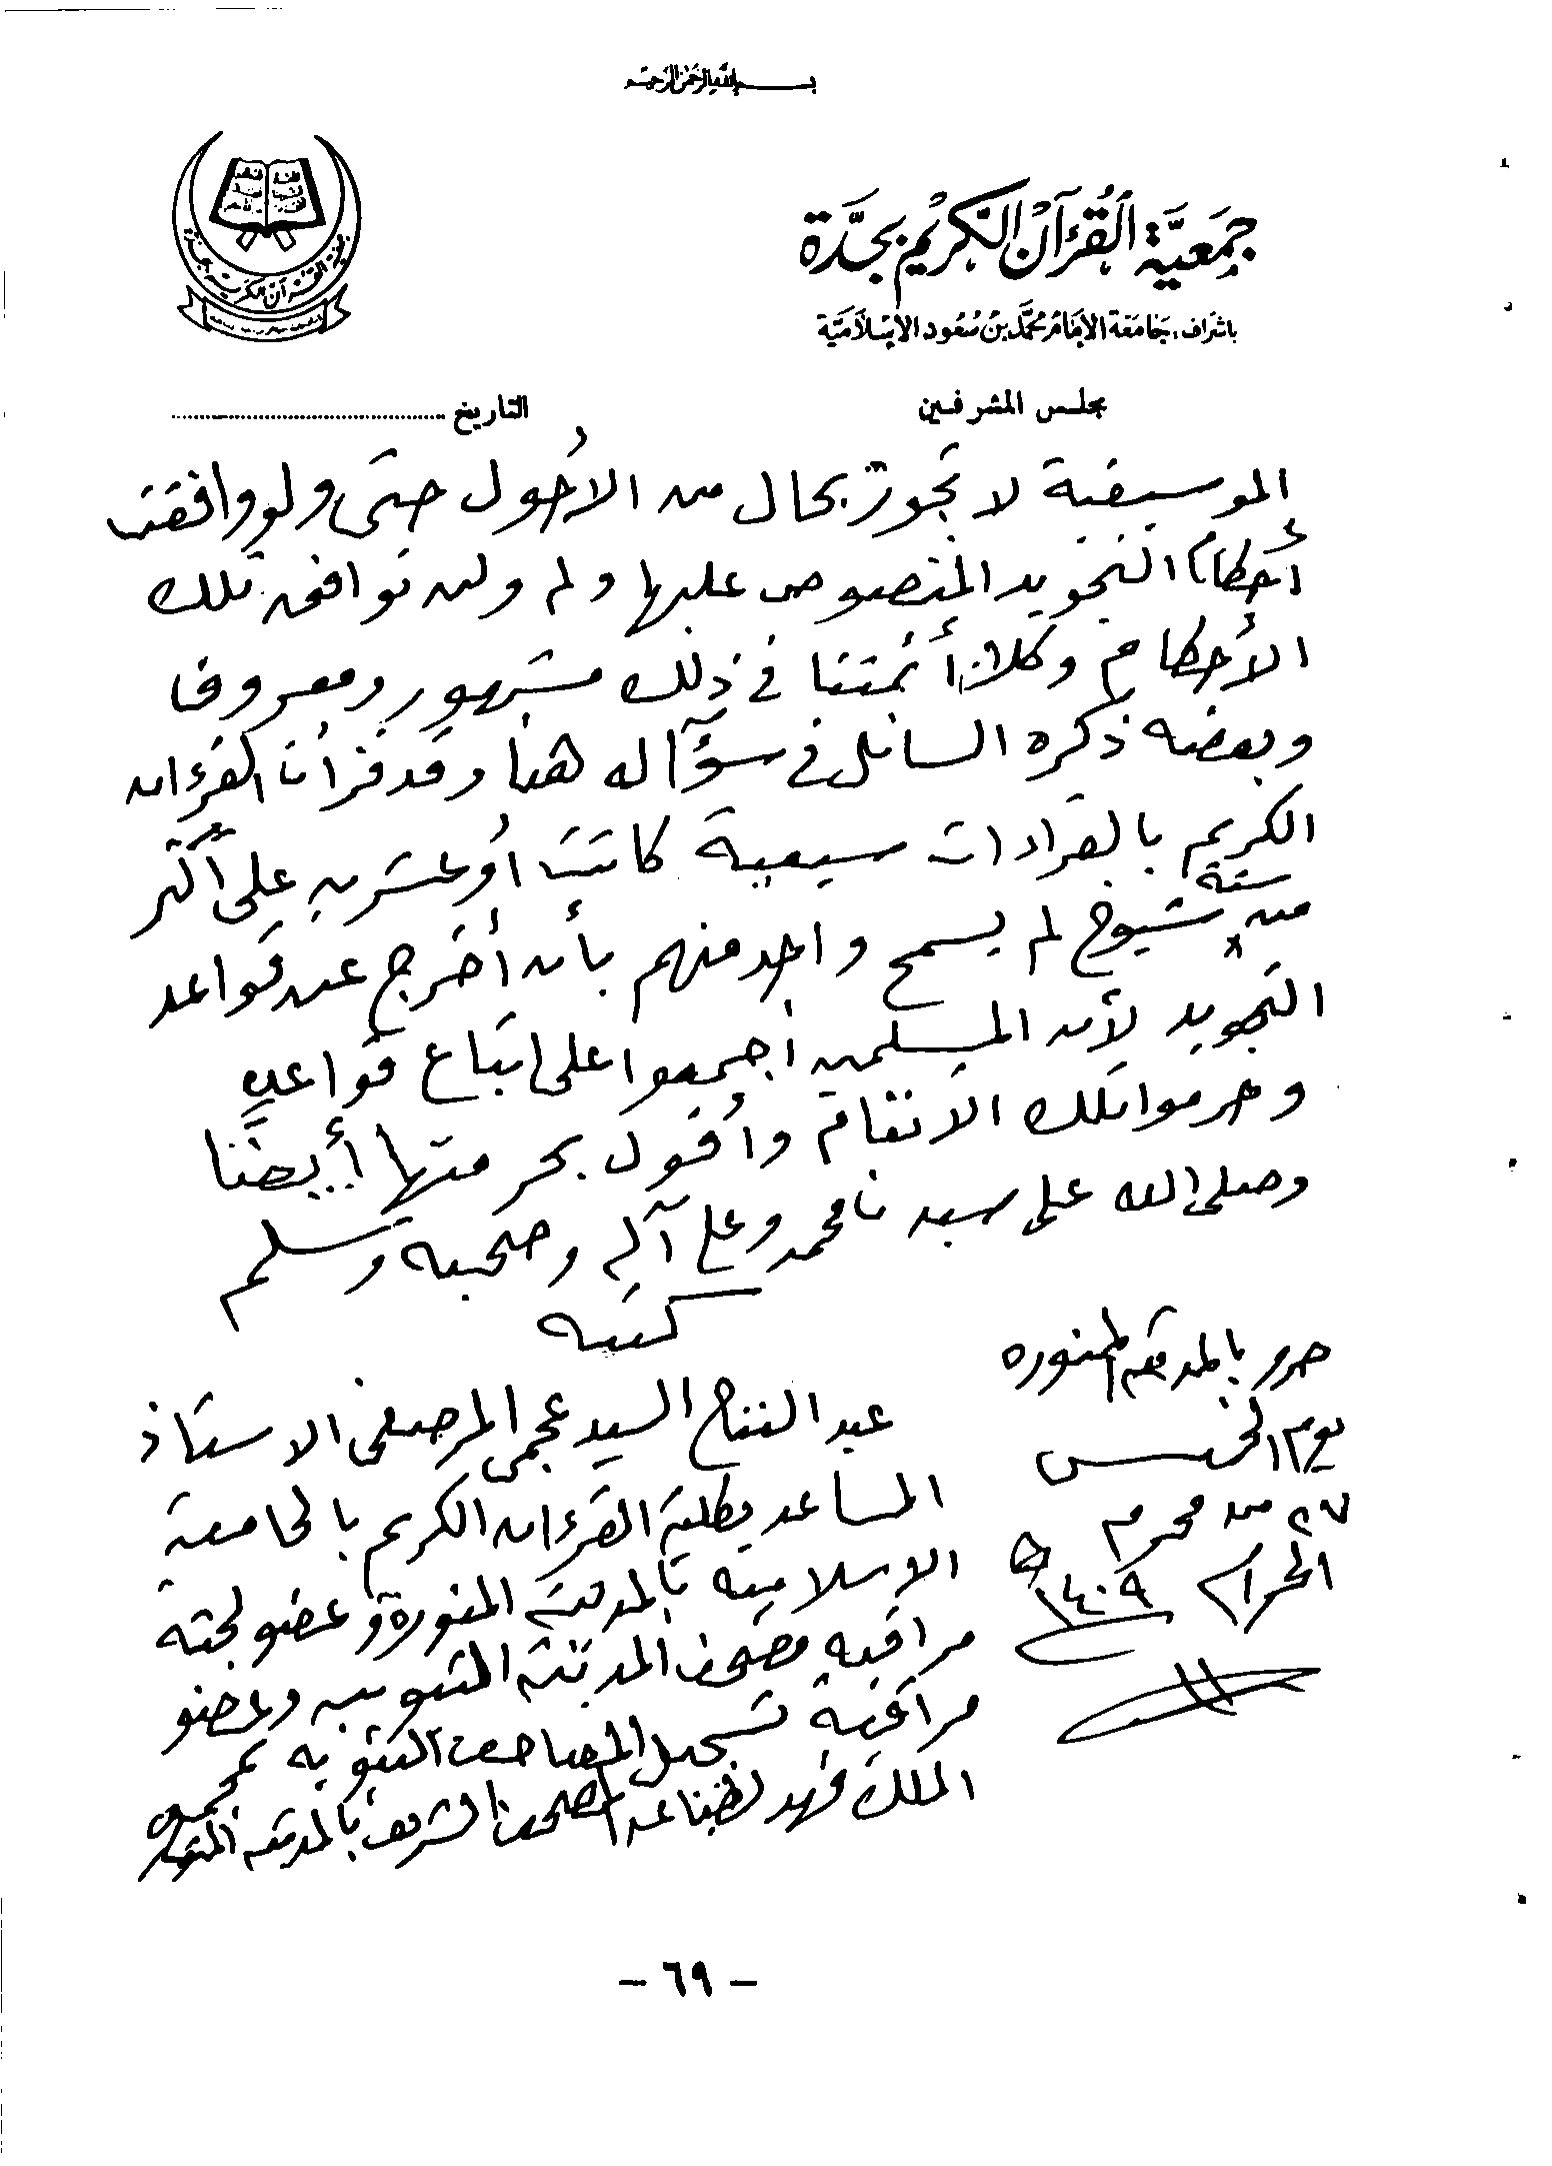 بسم الله الرحمن الرحيم
جَمعيَّة القُرآن الكَريْم بجَدَّة
باشراف: جَامعَة الإمَام محمَّد بن سُعُود الإسْلاَميَّة
مجلس المشرفين
التاريخ
الموسيقية لا تجوز بحال من الأحول حتى ولو وافقت
أحكام التجويد المنصوص عليها ولم ولن توافق تلك
الأحكام وكلام أئمتنا في ذلك مشهور ومعروف
وبعضه ذكره السائل في سؤاله هنا وقد قرأت القرءان
الكريم بالقراءات سبعية كانت أو عشرية على أكثر
من ستة شيوخ لم يسمح واحد منهم بأن أخرج عن قواعد
التجويد لأن المسلمين أجمعوا على اتباع قواعده
وحرموا تلك الانغام وأقول بحرمتها أيضًا
وصلى الله على سيدنا محمد وعلى آله وصحبه وسلم
كتبه
حرر بالمدينة المنوره
يوم الخميس
٢٧ من محرم
الحرام ١٤٠٩ هـ
عبد الفتاح السيد عجمى المرصفى الاستاذ
المساعد بكلية القرءان الكريم بالجامعة
الاسلامية بالمدينة المنورة وعضو لجنة
مراقبة مصحف المدينة النبوية وعضو
مراقبة تسجيل المصاحف النبوية بمجمع
الملك فهد لطباعة المصحف الشريف بالمدينة المنورة
- ٦٩ -